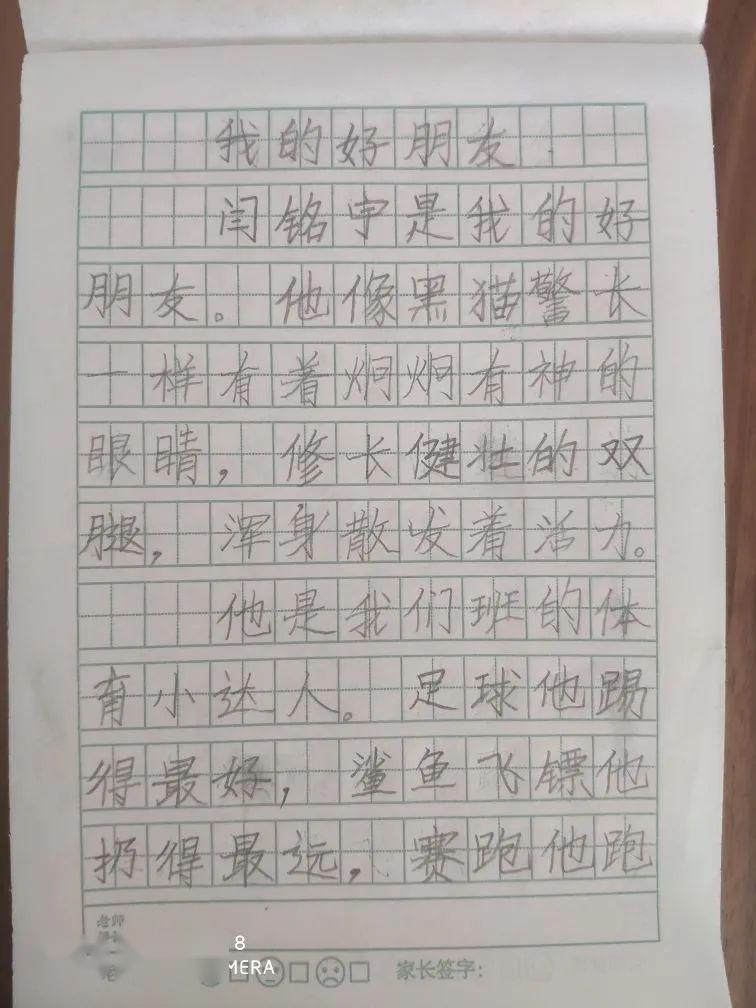 我的好朋友
闫铭宇是我的好
朋友。他像黑猫警长
一样有着炯炯有神的
眼睛，修长健壮的双
腿，浑身散发着活力。
他是我们班的体
育小达人。足球他踢
得最好，鲨鱼飞镖他
扔得最远，赛跑他跑
老师
8
MERA
家长签字：